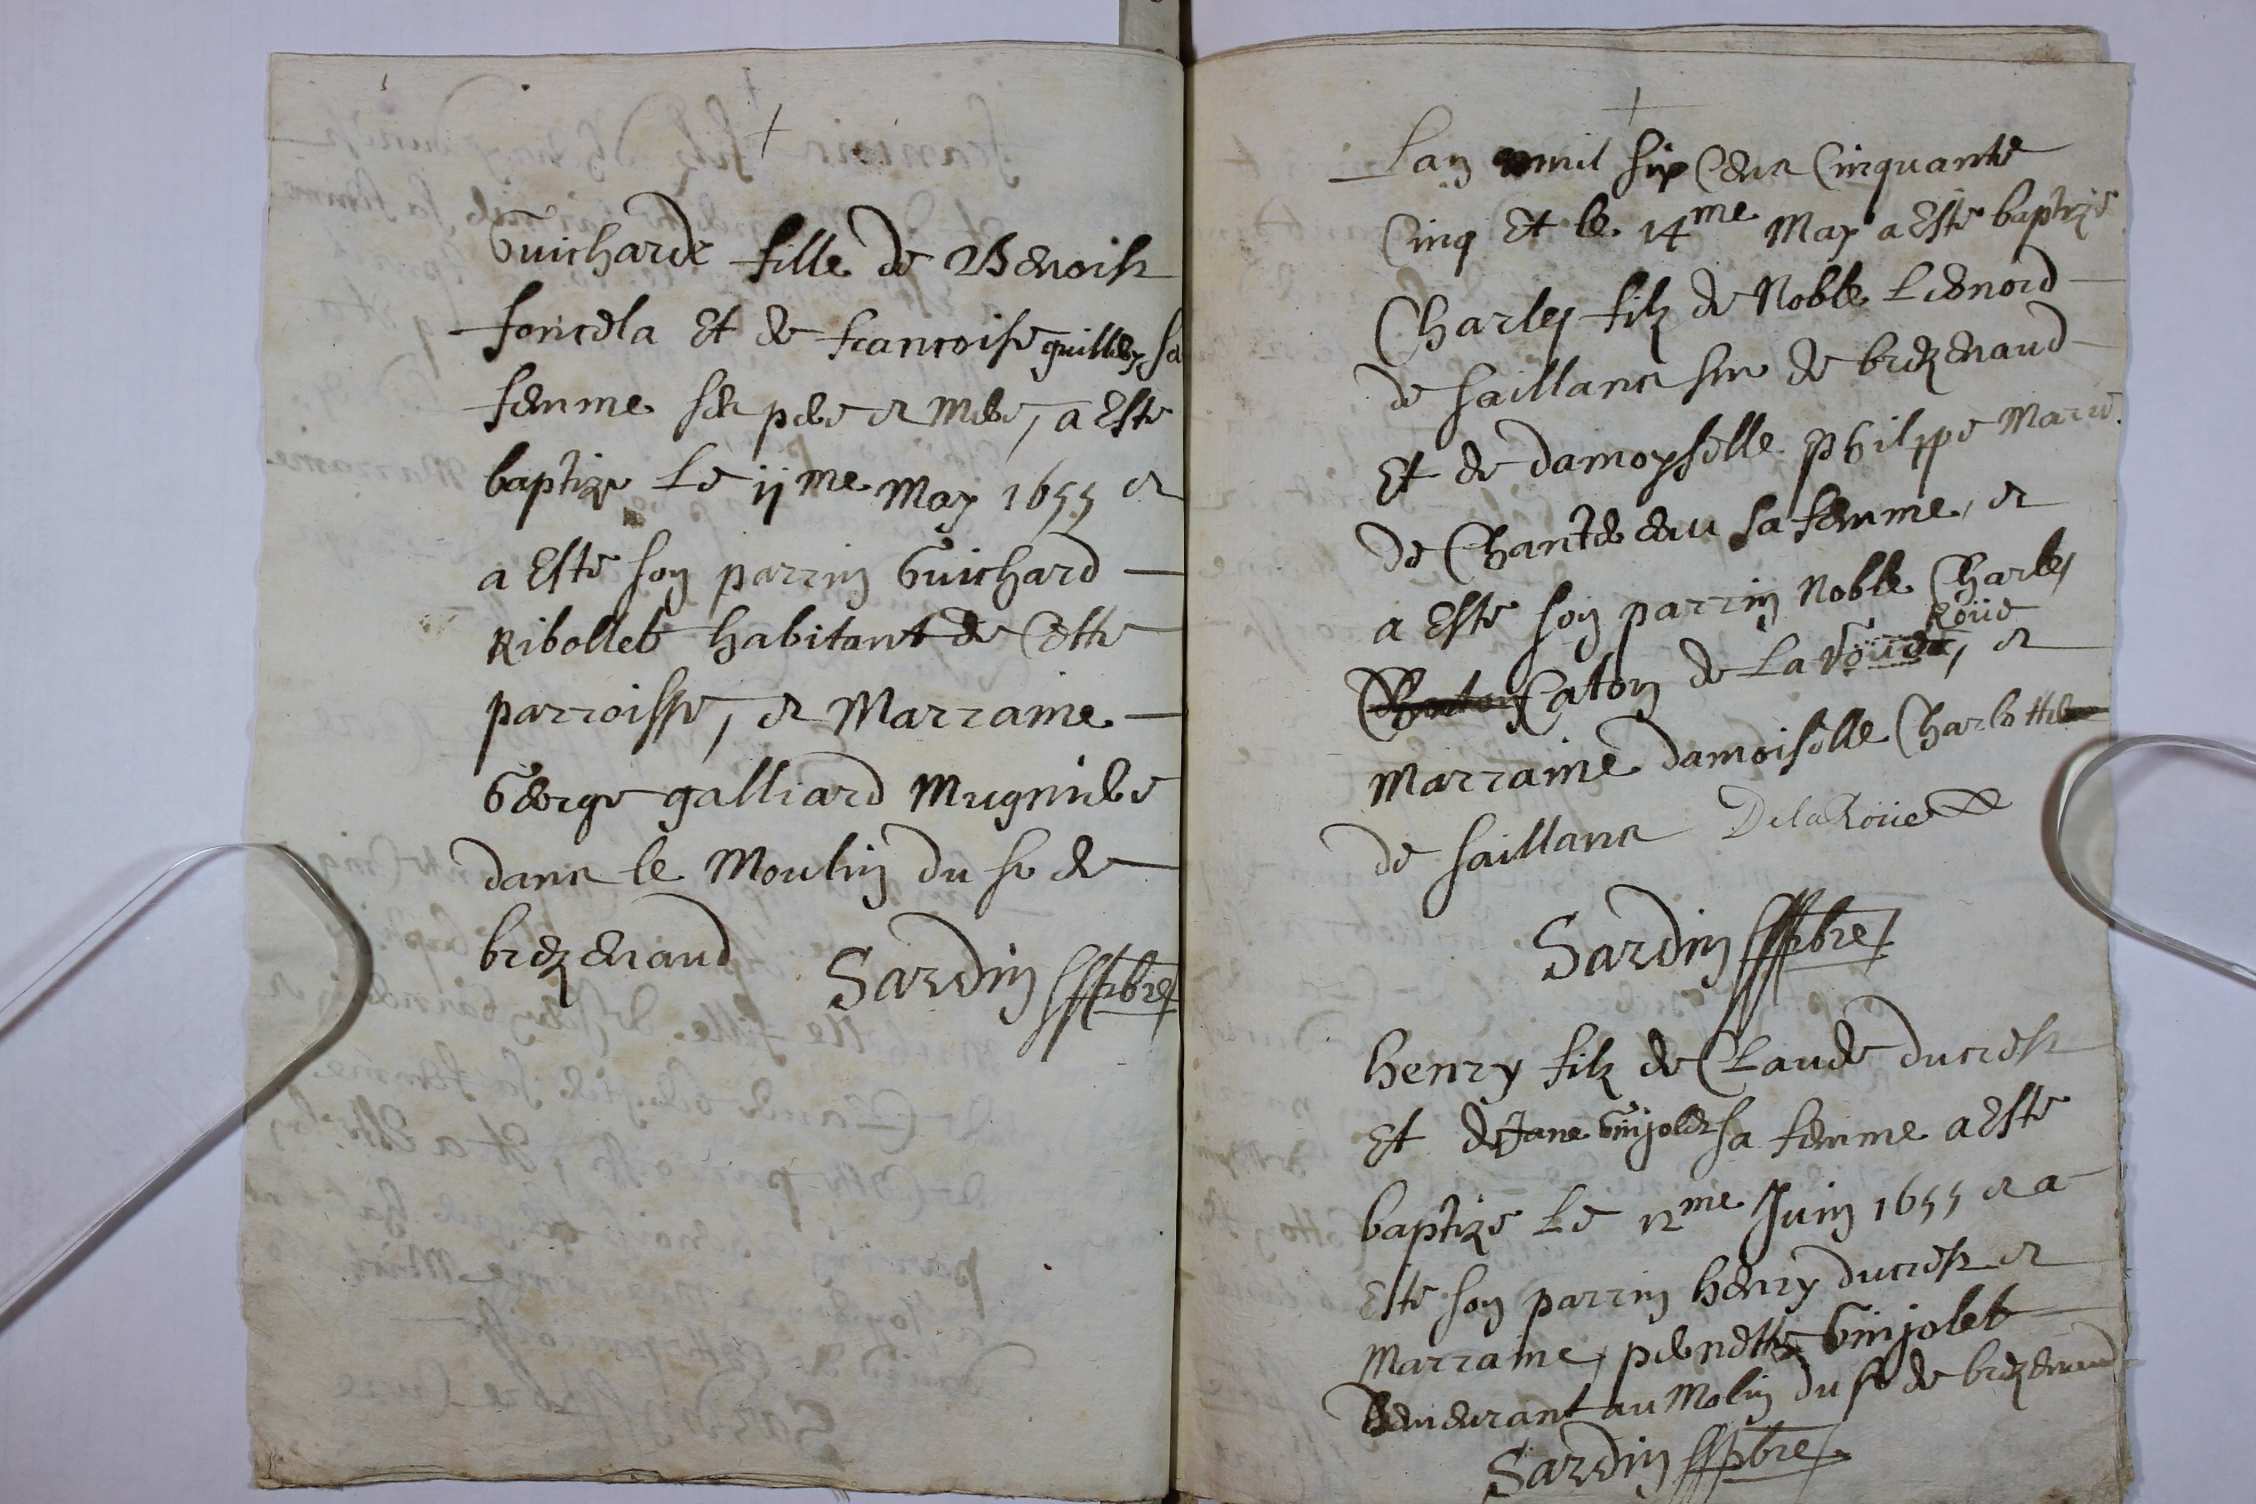 Guicharde fille de Benoist
foncela Et de francoise guilley sa
femme ses pere et mere, a Este
baptize Le 11me May 1655 et
a Este son parrin Guichard
Ribollet habitant de Cette
parroisse, et Marraine
George galliard Mugniere
dans le Moulin du sr de
brezenaud Sardin pbre
Lan mil six Cens Cinquante
Cinq Et le 14me May a Este baptize
Charles filz de Noble Lienord
de saillans sr de brezenaud
Et de damoyselle Philippe Marie
de Chantereau sa femme, et
a Este son parrin Noble Charles
Roüe
Caton de La et
Marraine damoiselle Charlotte
de saillans De la Roüe
Sardin pbre
henry filz de Claude ducrest
Et de Jane Guijolet sa femme a Este
baptize Le 12me Juin 1655 et a
Este son parrin henry ducrest et
Marraine, pernette Guijolet
demeurant au Molin du sr de brezenaud
Sardin pbre